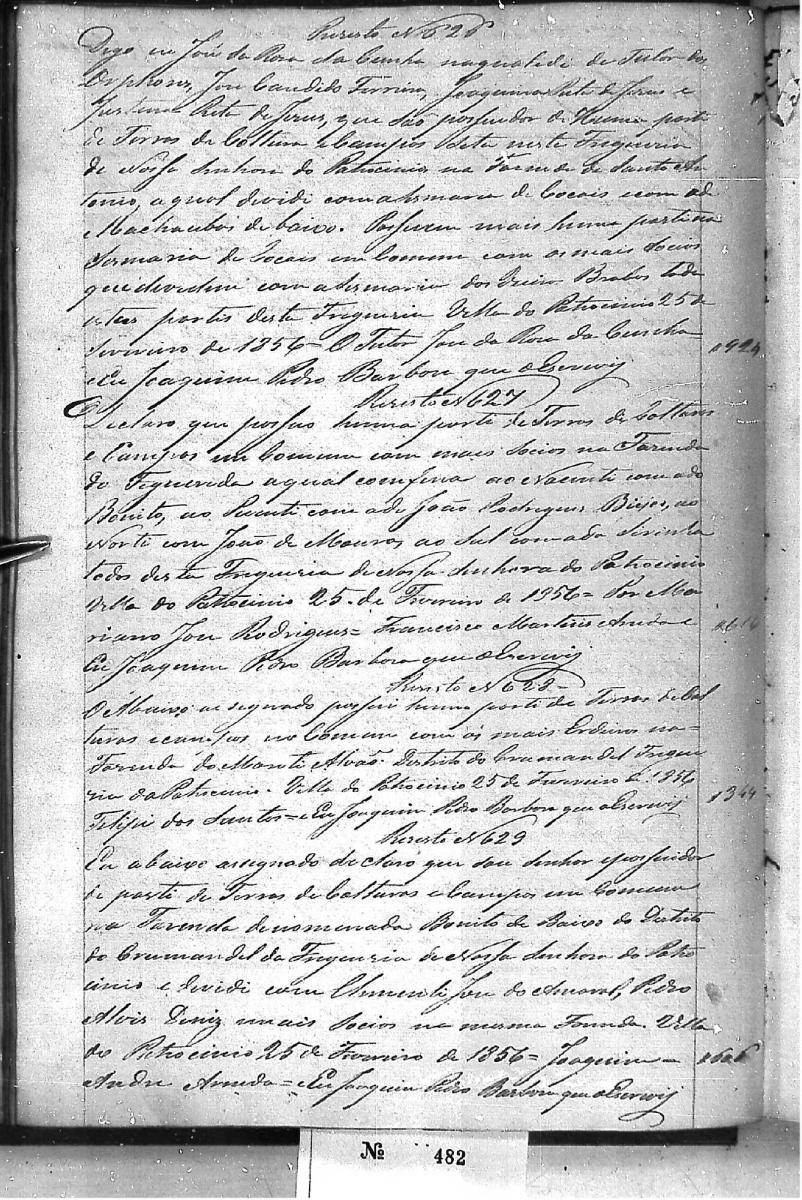 Rezisto N 626
Digo eu José da Roza da Cunha na qualide de Tutor dos
Orphons, Jose Candido Ferreira, Joaquina Rita de Jezus e
Justina Rita de Jezus, que são possuidor de Huma parte
de Terras de Coltura e Campos Cita neste Freguezia
de Nossa Senhora do Patrocinio na Fazenda de Santo An
tonio, a qual devide com a Sismaria de Cocais e com a de
Machaubos de baixo. Possuem mais huma parte na
Sesmaria de Cocais em Comum com os mais Socios
que devedem com a Sesmaria dos Vieira Brabos toda
estas partes desta Freguezia Villa do Patrocinio 25 de
Fevereiro de 1856 = O Tutor Jose da Roza da Cunha
e Eu Joaquim Pedro Barboza que o Escrevij
#924
Rezisto N 627
Declaro que possuo huma parte de Terras de Colturas
e Campos em Comum com mais Socios na Fazenda
do Figuereda a qual comfina ao Nacente com a do
Bonito, ao Puenti com a de João Rodrigues Biejos, ao
Norte com João de Mouros, ao Sul com a da Sirinha
todos desta Freguezia de Nossa Senhora do Patrocinio
Villa do Patrocinio 25 de Fevereiro de 1856 = Por Ma
riano Jose Rodrigues = Francisco Martins Arruda e
Eu Joaquim Pedro Barboza que o Escrevij
Rezisto N 628 =
O Abaixo asegnado possui huma parti de Terras de Col
turas e campos no Comum com os mais Erdeiros na =
Fazenda do Macuti Alvão. Destrito do Crumandel Fregue
zia do Patrocinio. Villa do Patrocinio 25 de Fevereiro de 1856
Felipi dos Santos = e Eu Joaquim Pedro Barboza que o Escrevij
#344
Rezisto N 629
Eu abaixo assegnado declaro que sou Senhor e possuidor
de parti de Terras de Colturas e Campos em Comum
na Fazenda denomenada Bonito de Baixo do Destrito
do Crumandel da Freguezia de Nossa Senhora do Patro
cinio e devidi com Clementi Jose do Amaral, Pedro
Alvis Diniz e mais Socios na mesma Fazenda. Villa
do Patrocinio 25 de Fevereiro de 1856 = Joaquim =
#606
Andre Arruda = e Eu Joaquim Pedro Barboza que o Escrevij
No 482